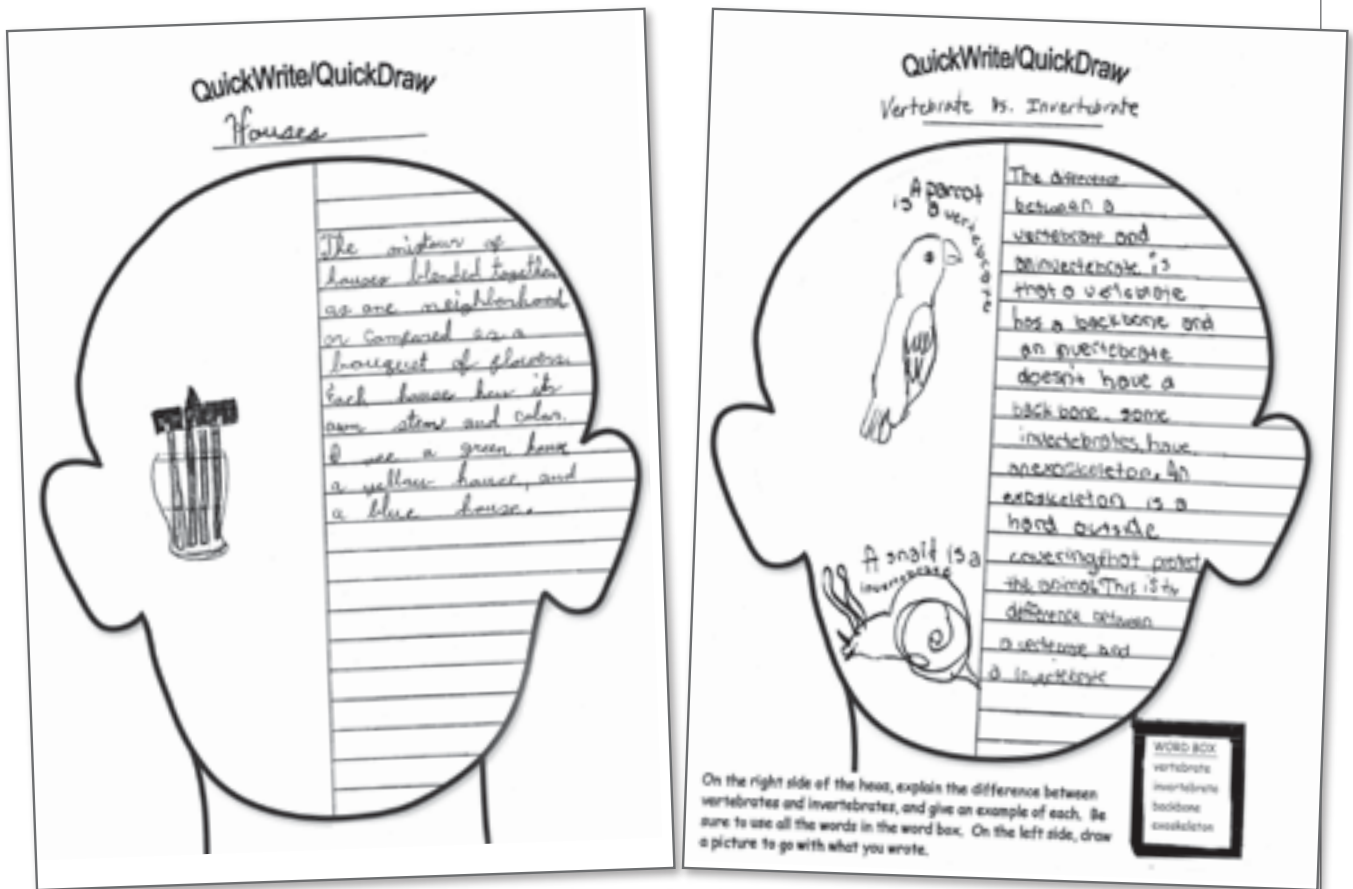 QuickWrite/QuickDraw
Houses
The mixtour of
houses blended together
as one neighborhood
or compared as a
bouquet of flowers.
Each house has its
own stems and color.
I see a green house
a yellow house, and
a blue house.
QuickWrite/QuickDraw
Vertebrate Vs. Invertebrate
A parrot
is a
The difference
between a
vertebrate and
an invertebrate is
that a vertebrate
has a backbone and
an invertebrate
doesn't have a
back bone. some
invertebrates have
an exoskeleton. An
exoskeleton is a
hard outside
covering that protect
the animal. This is the
difference between
a and
a invertebrate
A snail is a
invertebrate
WORD BOX
vertebrate
invertebrate
backbone
exoskeleton
On the right side of the head, explain the difference between
vertebrates and invertebrates, and give an example of each. Be
sure to use all the words in the word box. On the left side, draw
a picture to go with what you wrote.